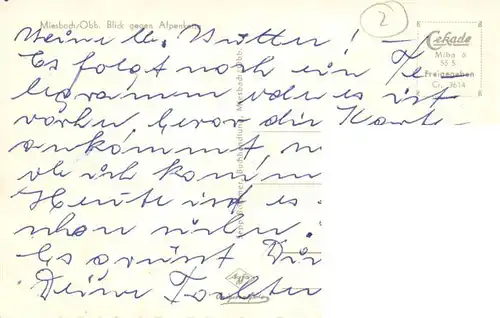 Miesbach/Obb. Blick gegen Alpenkette
2
Cekade
Miba 6
55 S
Freigegeben
Cr. 7614
Meine lb. Mutter! –
Es folgt noch ein Te-
legramm oder es ist
vorher bevor die Karte
ankommt,
ob ich komm
Heute ist es
schon
Es grüßt Dich
Deine Tochter